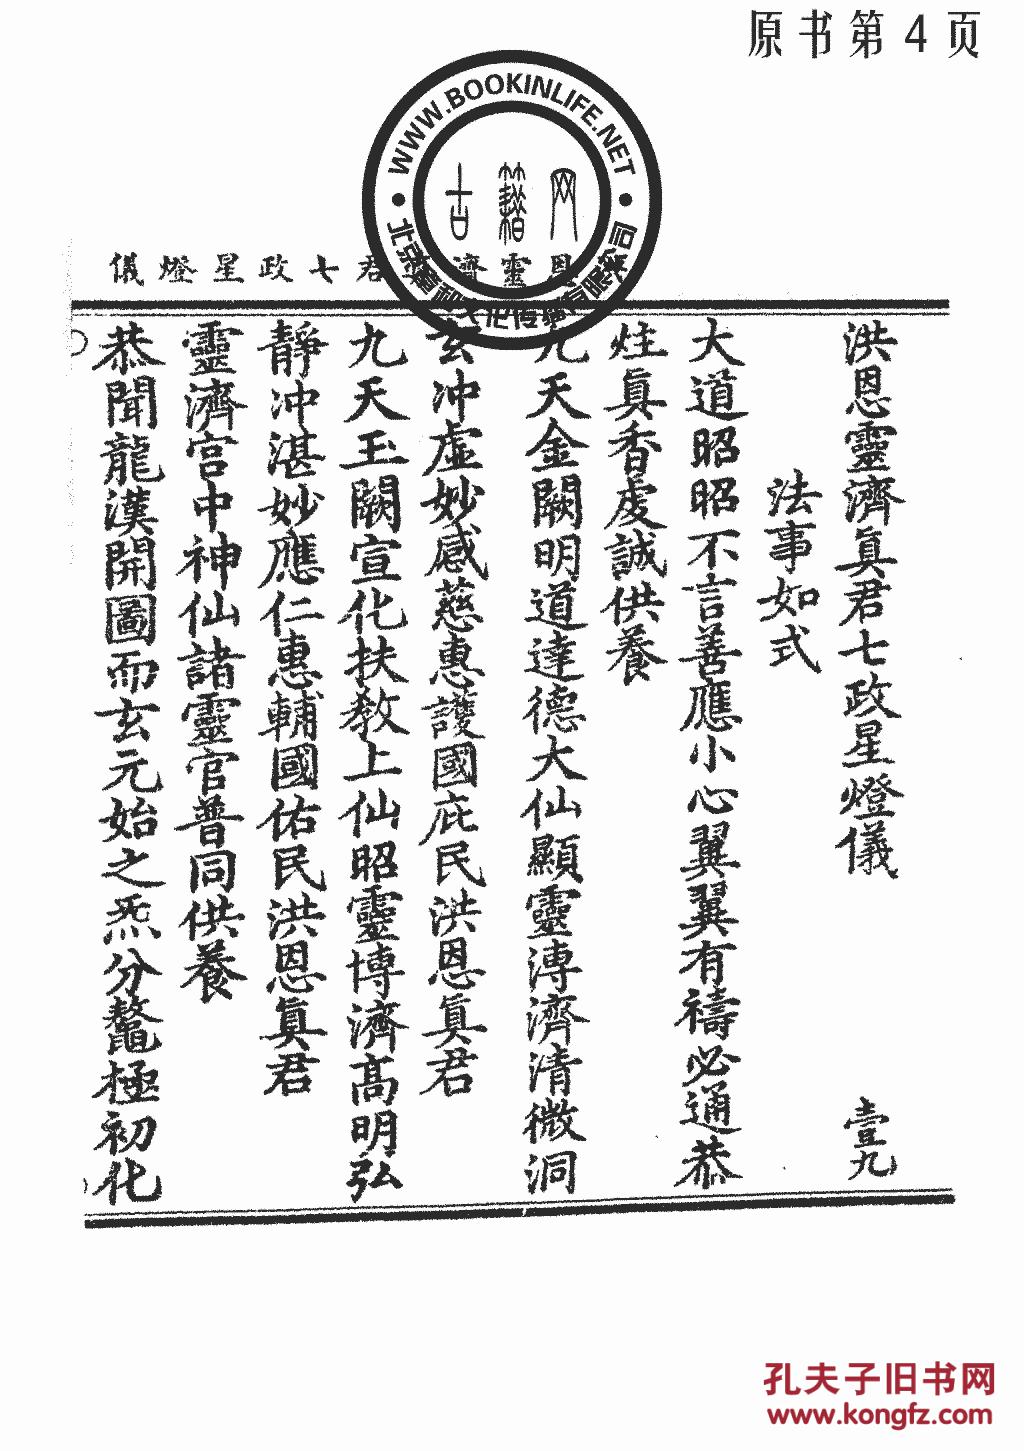 原书第4页
WWW.BOOKINLIFE.NET
古籍网
儀燈星政七君
濟靈恩
洪恩靈濟眞君七政星燈儀
壹九
法事如式
大道昭昭不言善應小心翼翼有禱必通恭
炷眞香虔誠供養
九天金闕明道達德大仙顯靈溥濟清微洞
玄冲虛妙感慈惠護國庇民洪恩眞君
九天玉闕宣化扶教上仙昭靈博濟高明弘
靜冲湛妙應仁惠輔國佑民洪恩眞君
靈濟宫中神仙諸靈官普同供養
恭聞龍漢開圖而玄元始之炁分鼇極初化
孔夫子旧书网
www.kongfz.com